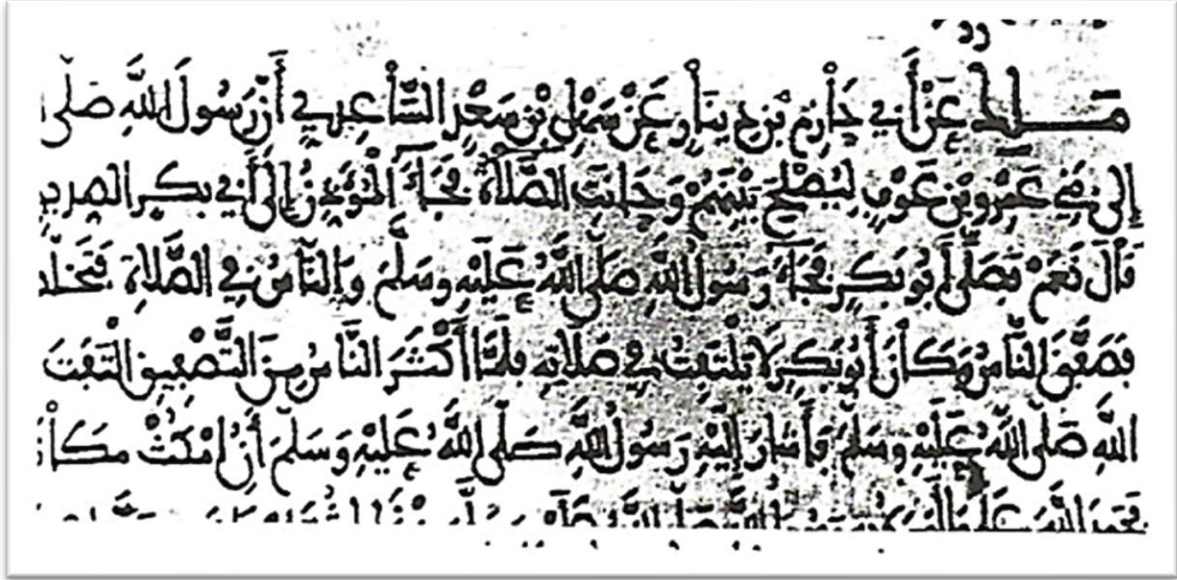 مَالِك عَنْ أَبِي حَازِمِ بْنِ دِينَارٍ عَنْ سَهْلِ بْنِ سَعْدٍ السَّاعِدِيِّ أَنَّ رَسُولَ اللَّهِ صَلَّى
إِلَى بَنِي عَمْرِو بْنِ عَوْفٍ لِيُصْلِحَ بَيْنَهُمْ وَحَانَتِ الصَّلَاةُ فَجَاءَ الْمُؤَذِّنُ إِلَى أَبِي بَكْرٍ الصدي
قَالَ نَعَمْ فَصَلَّى أَبُو بَكْرٍ فَجَاءَ رَسُولُ اللَّهِ صَلَّى اللَّهُ عَلَيْهِ وَسَلَّمَ وَالنَّاسُ فِي الصَّلَاةِ فَتَخَلَّ
فَصَفَّقَ النَّاسُ وَكَانَ أَبُو بَكْرٍ لَا يَلْتَفِتُ فِي صَلَاتِهِ فَلَمَّا أَكْثَرَ النَّاسُ مِنَ التَّصْفِيقِ الْتَفَتَ
اللَّهِ صَلَّى اللَّهُ عَلَيْهِ وَسَلَّمَ فَأَشَارَ إِلَيْهِ رَسُولُ اللَّهِ صَلَّى اللَّهُ عَلَيْهِ وَسَلَّمَ أَنُ امْكُثْ مَكَانَ